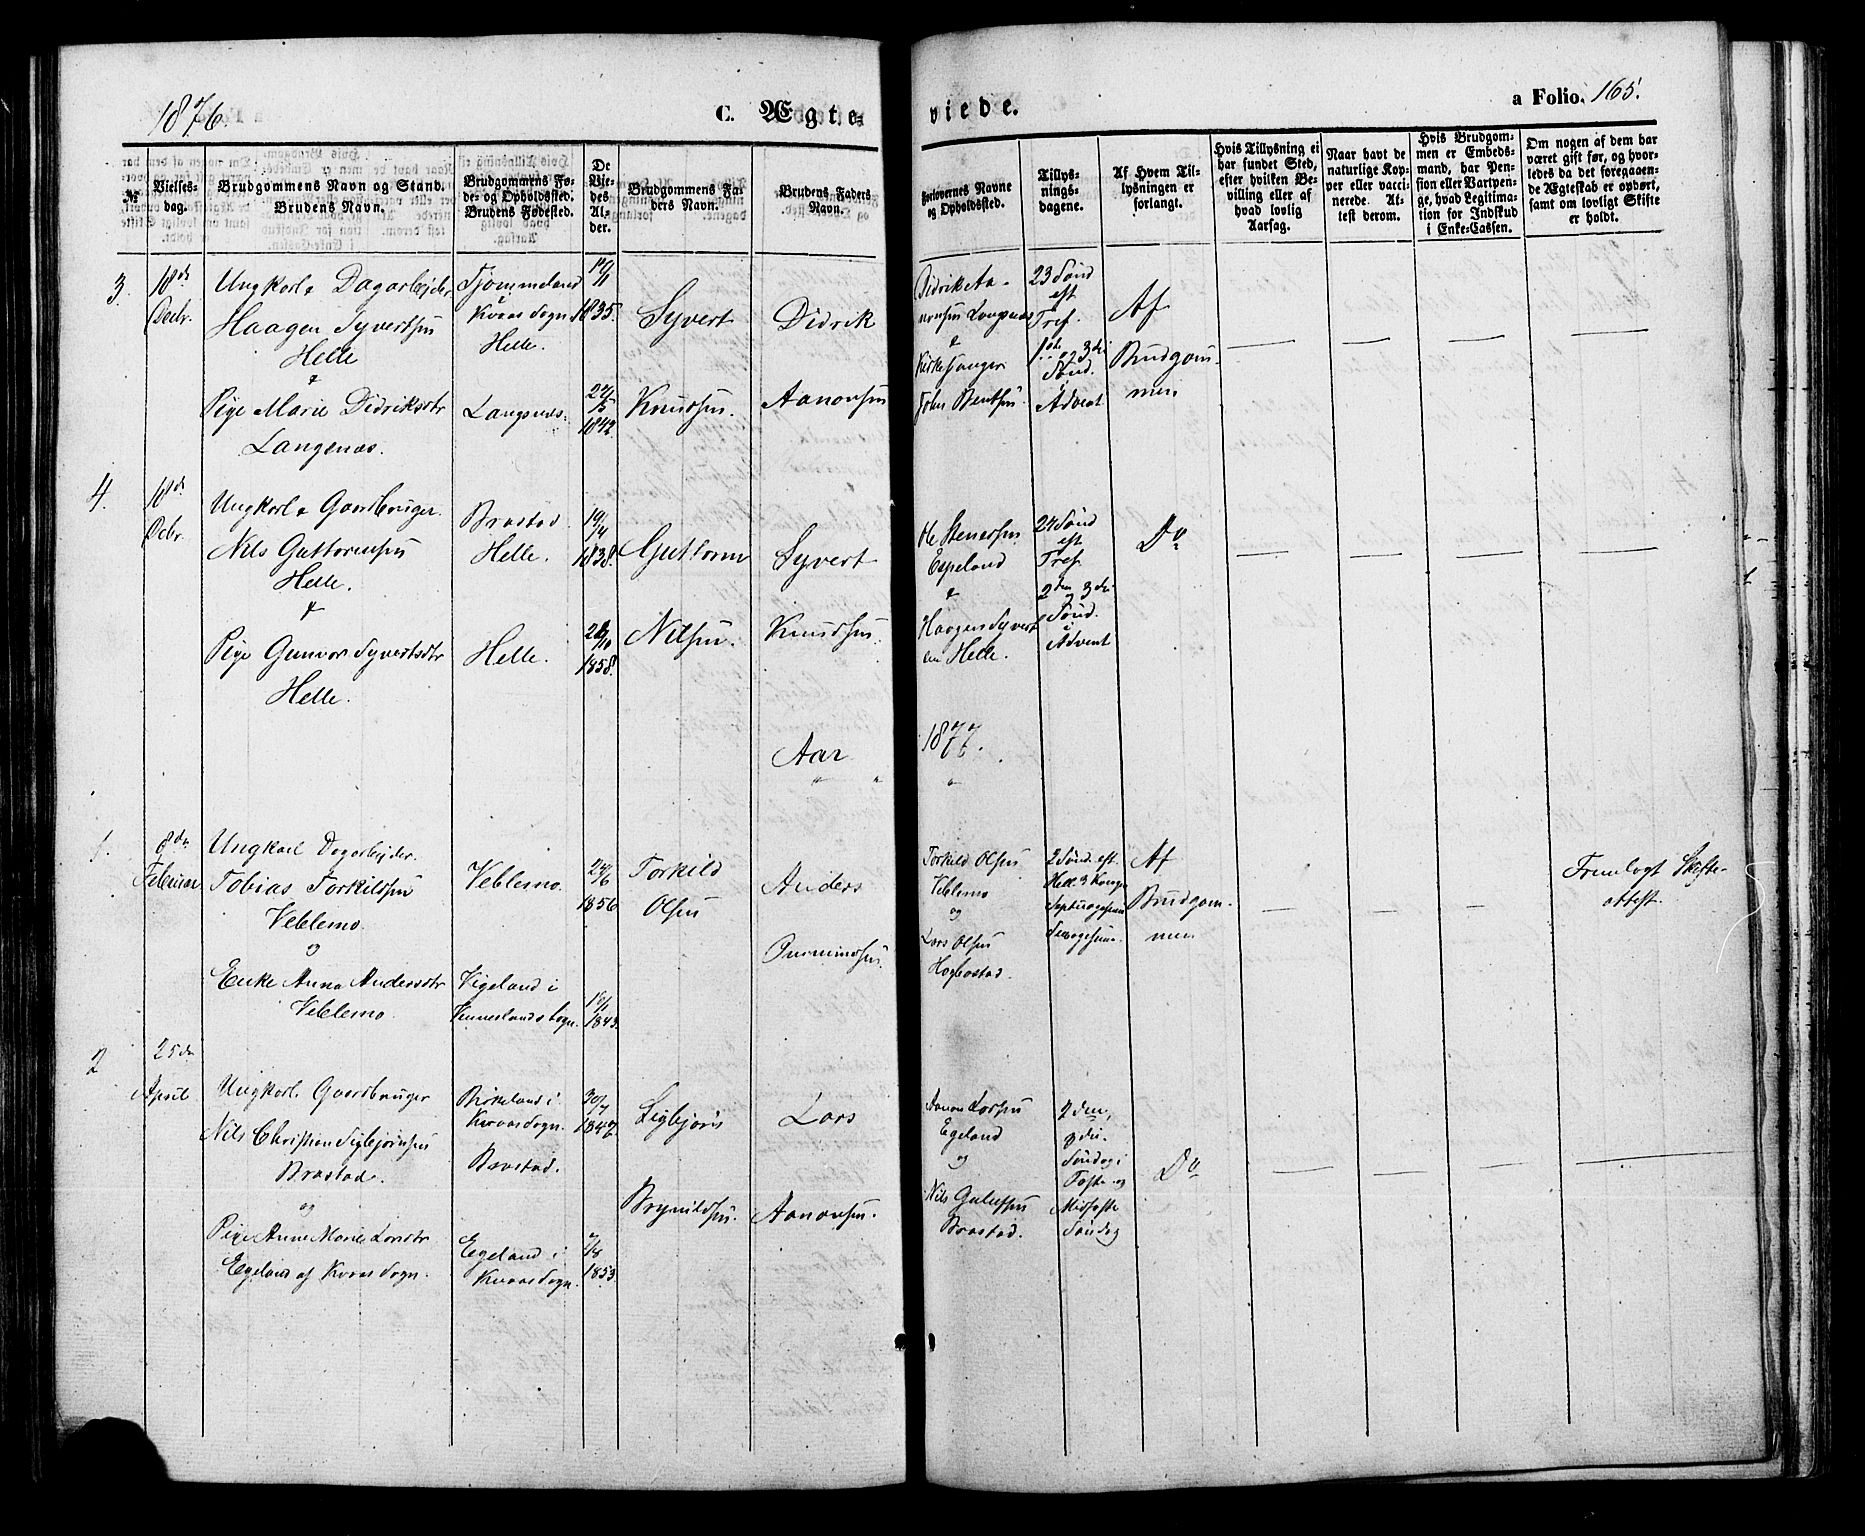 1876.
C. Ægte-
viede.
a Folio. 165.
№
Vielses-
dag.
Brudgommens Navn og Stand.
Brudens Navn.
Brudgommens Fø-
de- og Opholdssted.
Brudens Fødested.
De
Vie-
des
Al-
der.
Brudgommens Fa-
ders Navn.
Brudens Faders
Navn.
Forlovernes Navne
og Opholdssted.
Tillys-
nings-
dagene.
Af Hvem Til-
lysningen er
forlangt.
Hvis Tillysning ei
har fundet Sted,
efter hvilken Be-
villing eller af
hvad lovlig
Aarsag.
Naar havt de
naturlige Kop-
per eller vacci-
nerede. At-
test derom.
Hvis Brudgom-
men er Embeds-
mand, har Pen-
sion eller Vartpen-
ge, hvad Legitima-
tion for Indskud
i Enke-Cassen.
Om nogen af dem har
været gift før, og hvor-
ledes da det foregaaen-
de Ægteskab er ophørt,
samt om lovligt Skifte
er holdt.
3.
18de
Decbr.
Ungkarl & Dagarbejder
Haagen Syvertsen
Helle
&
Pige Marie Didriksdtr
Langenæs.
Tjommeland
Kvaas Sogn
Helle.
Langenæs.
1835.
1842
Syvert
Knudsen.
Didrik
Aanonsen
Didrik Aa-
nonsen Langenæs
&
Kirkesanger
John Bentsen.
23 Sønd
eft
Tref.
1ste og 3die
Sønd.
Advent
Af
Brudgom-
men
4.
18de
Dcbr.
Ungkarl & Gaardbruger
Nils Guttormsen
Helle.
&
Pige Gunvor Syvertsdtr
Helle.
Brastad
Helle.
Helle.
19/4
1838.
1858.
Guttorm
Nilsen.
Syvert
Knudsen.
Ole Stenersen
Espeland
&
Haagen Syvert
sen Helle.
24 Sønd
eft
Tref
2den 3die
Sønd.
i
Advent
Do
Aar
1877.
1.
8de
Februar
Ungkarl Dagarbejder.
Tobias Torkildsen
Veblemo.
og
Enke Anna Andersdtr
Veblemo.
Veblemo.
Vigeland i
Vennerlands Sogn.
24/6
1856
1843.
Torkild
Olsen
Anders
Gunuundsen.
Torkild Olsen
Veblemo
og
Lars Olsen
Høgbostad.
2 Sønd. eft.
Hell. 3 Konge
Septuagesima
Sexagesima.
Af
Brudgom-
men
Fremlagt Skifte-
attest.
2
25de
April
Ungkarl. Gaardbruger
Nils Christian Sigbjørnsen
Brastad.
og
Pige Anne Marie Larsdtr
Egeland af Kvaas Sogn.
Birkeland i
Kvaas Sogn.
Brastad.
Egeland i
Kvaas Sogn.
30/7
1847
7/8
1853.
Sigbjørn
Brynildsen.
Lars
Aanonsen.
Aanon Larsen
Egeland
og
Nils Gulufsen
Brastad.
2den,
3die.
Søndag i
Faste og
Midfaste
Søndag
Do